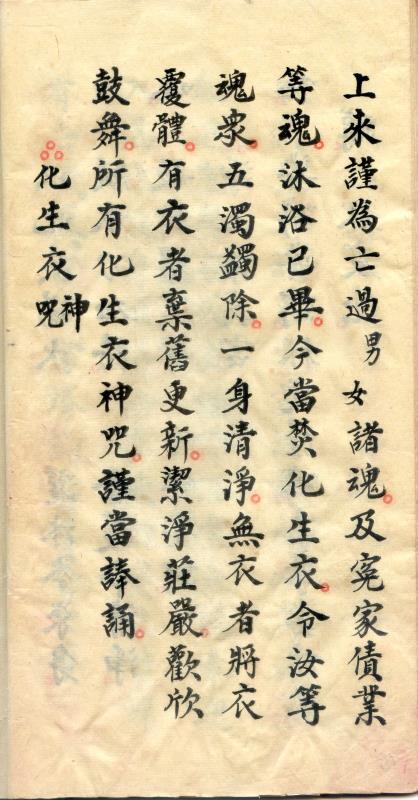 上來謹為亡過男女諸魂。及寃家債業
等魂。沐浴已畢。今當焚化生衣。令汝等
魂衆。五濁蠲除。一身清淨。無衣者將衣
覆體。有衣者棄舊更新。潔淨莊嚴。歡欣
鼓舞。所有化生衣神咒。謹當諱誦。
化生衣神咒